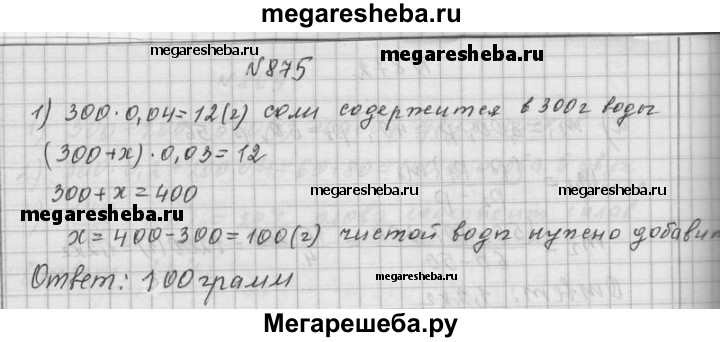 megaresheba.ru
№875
megaresheba.ru megaresheba.ru
1) 300·0,04=12(г) соли содержится в 300г воды
(300+х)·0,03=12
300+х=400
megaresheba.ru megaresheba.ru
х=400-300=100(г) чистой воды нужно добавит
Ответ: 100грамм
megaresheba.ru megaresheba.ru
Мегарешеба.ру